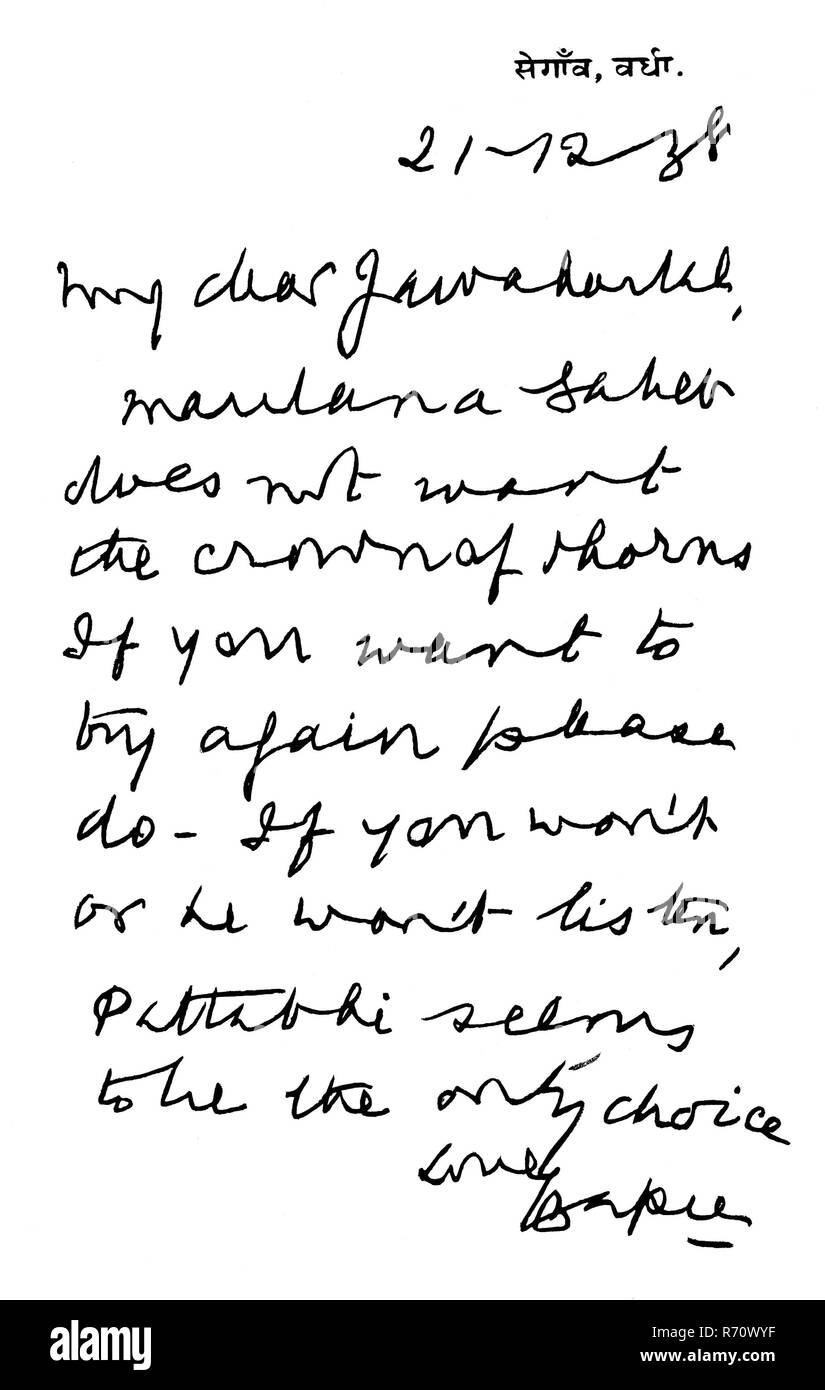 सेगाँव, वर्धा.
21-12-38
My dear Jawaharlal,
Maulana Saheb
does not want
the crown of thorns
If you want to
try again please
do - If you won't
or he won't listen,
Pattabhi seems
to be the only choice
Love
Bapu
alamy
Image ID: R70WYF
www.alamy.com